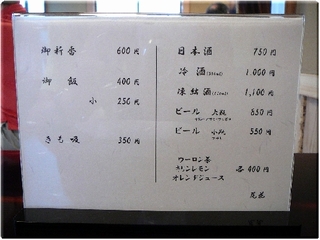 御新香 600円
御飯 400円
小 250円
きも吸 350円
日本酒 750円
冷酒 1,000円
凍結酒 1,100円
ビール 大瓶 850円
ビール 小瓶 550円
ウーロン茶
キリンレモン 各400円
オレンジジュース